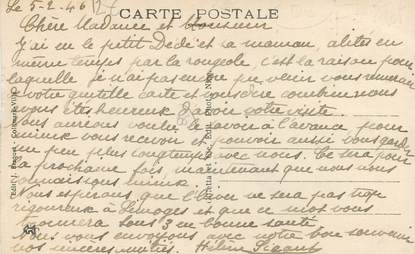 Le 5-2-46
CARTE POSTALE
Chère Madame et Monsieur
J'ai eu le petit Dédé et sa maman, alités en
même temps par la rougeole, c'est la raison pour
laquelle je n'ai pas encore pu venir vous
votre gentille carte et vous dire combien nous
nous étions heureux d'avoir votre visite.
Nous aurions voulu le savoir à l'avance pour
mieux vous recevoir et pouvoir aussi vous garder
un peu plus longtemps avec nous. Ce sera pour
la prochaine fois, maintenant que nous nous
connaissons mieux.
Nous espérons que l'hiver ne sera pas trop
rigoureux à Limoges et que ce mot vous
trouvera tous 3 en bonne santé
Nous vous envoyons avec notre bon souvenir
nos sincères amitiés. Hélène